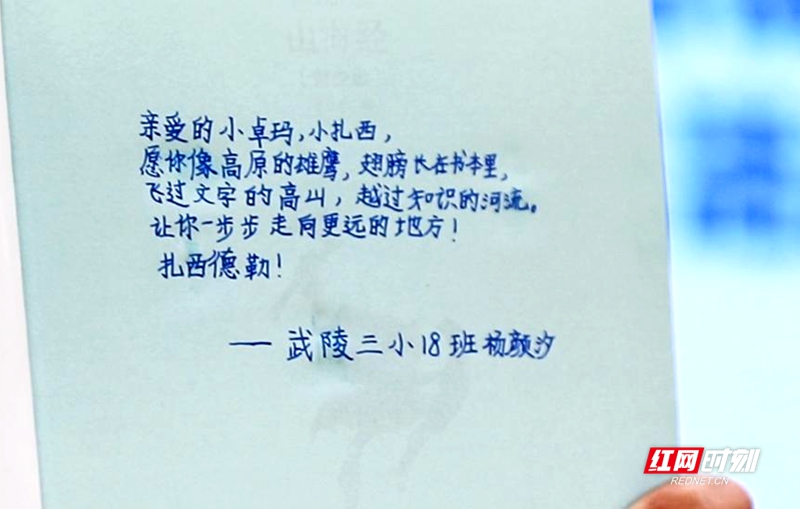 山海经
亲爱的小卓玛,小扎西,
愿你像高原的雄鹰,翅膀长在书本里,
飞过文字的高山,越过知识的河流。
让你一步步走向更远的地方!
扎西德勒!
— 武陵三小18班杨颜汐
红网时刻
REDNET.CN